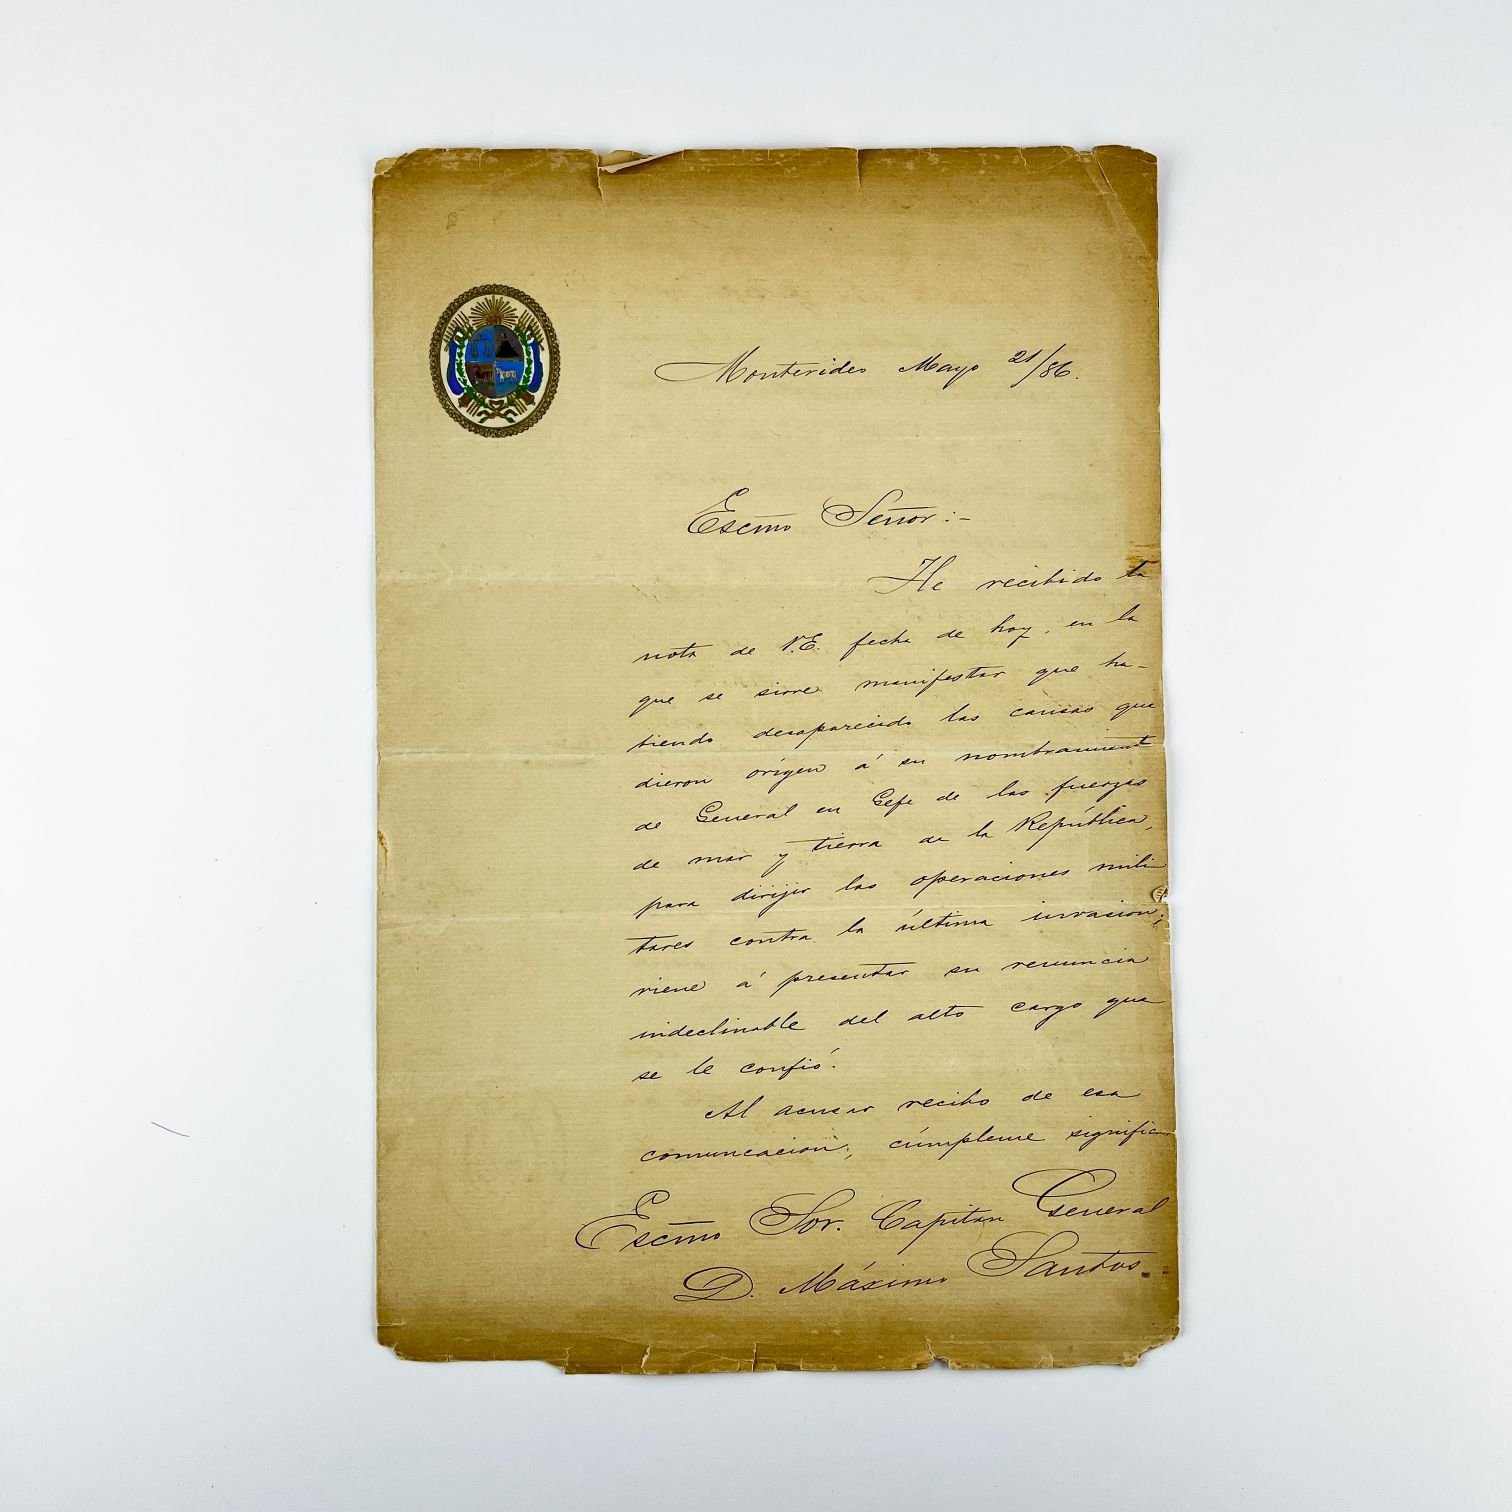 Montevideo Mayo 21/86.
Escmo Señor:-
He recibido la
nota de V.E. fecha de hoy, en la
que se sirve manifestar que ha-
biendo desaparecido las causas que
dieron orígen á su nombramient
de General en Gefe de las fuerzas
de mar y tierra de la República,
para dirijir las operaciones mili
tares contra la última invasion;
viene á presentar su renuncia
indeclinable del alto cargo que
se le confió.
Al acusar recibo de esa
comuncacion; cúmpleme significar
Escmo Sor. Capitan General
D. Máximo Santos.